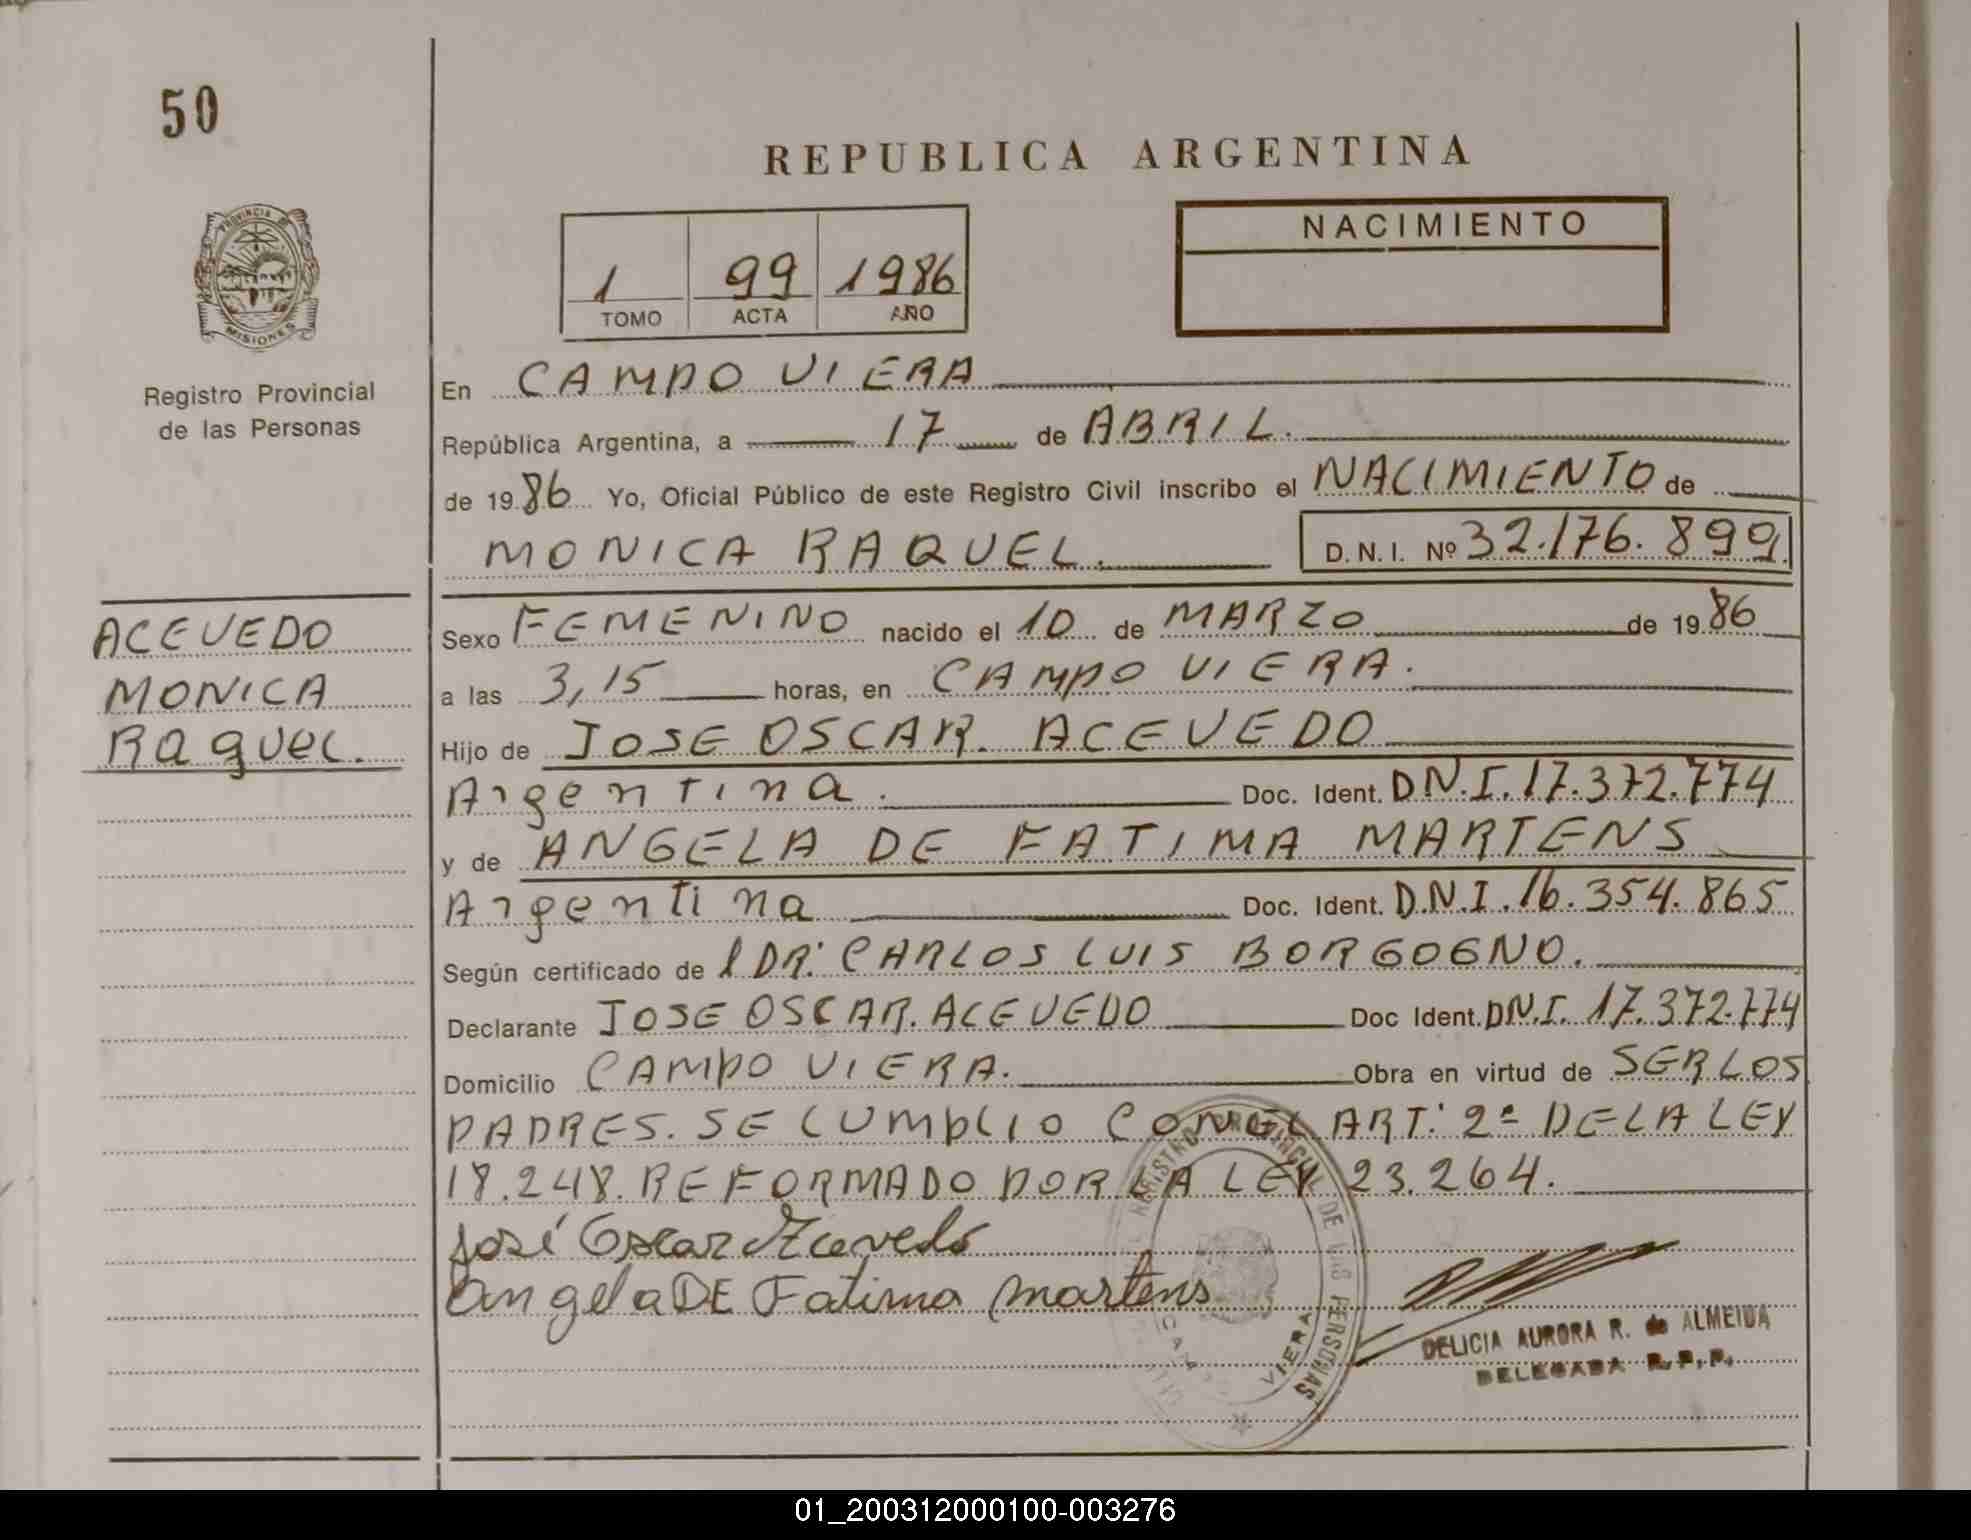 50
REPUBLICA ARGENTINA
PROVINCIA DE
MISIONES
Registro Provincial
de las Personas
1 99 1986
TOMO ACTA AÑO
NACIMIENTO
En CAMPO VIERA
República Argentina, a 17 de ABRIL.
de 1986 Yo, Oficial Público de este Registro Civil inscribo el NACIMIENTO de
MONICA RAQUEL. D. N. I. Nº 32.176.899.
ACEVEDO
MONICA
Raquel.
Sexo FEMENINO nacido el 10 de MARZO de 1986
a las 3,15 horas, en CAMPO VIERA.
Hijo de JOSE OSCAR. ACEVEDO
Argentina. Doc. Ident. D.N.I. 17.372.774
y de ANGELA DE FATIMA MARTENS
Argentina Doc. Ident. D.N.I. 16.354.865
Según certificado de l DR. CARLOS LUIS BORGOGNO.
Declarante JOSE OSCAR. ACEVEDO Doc Ident. D.N.I. 17.372.774
Domicilio CAMPO VIERA. Obra en virtud de SER LOS
PADRES. SE CUMPLIO CON EL ART. 2º DE LA LEY
18.248. REFORMADO POR LA LEY 23.264.
José Oscar Acevedo
Angela DE Fatima Martens
REGISTRO PROVINCIAL DE LAS PERSONAS
VIERA
DELICIA AURORA R. de ALMEIDA
DELEGADA R. P. P.
01_200312000100-003276